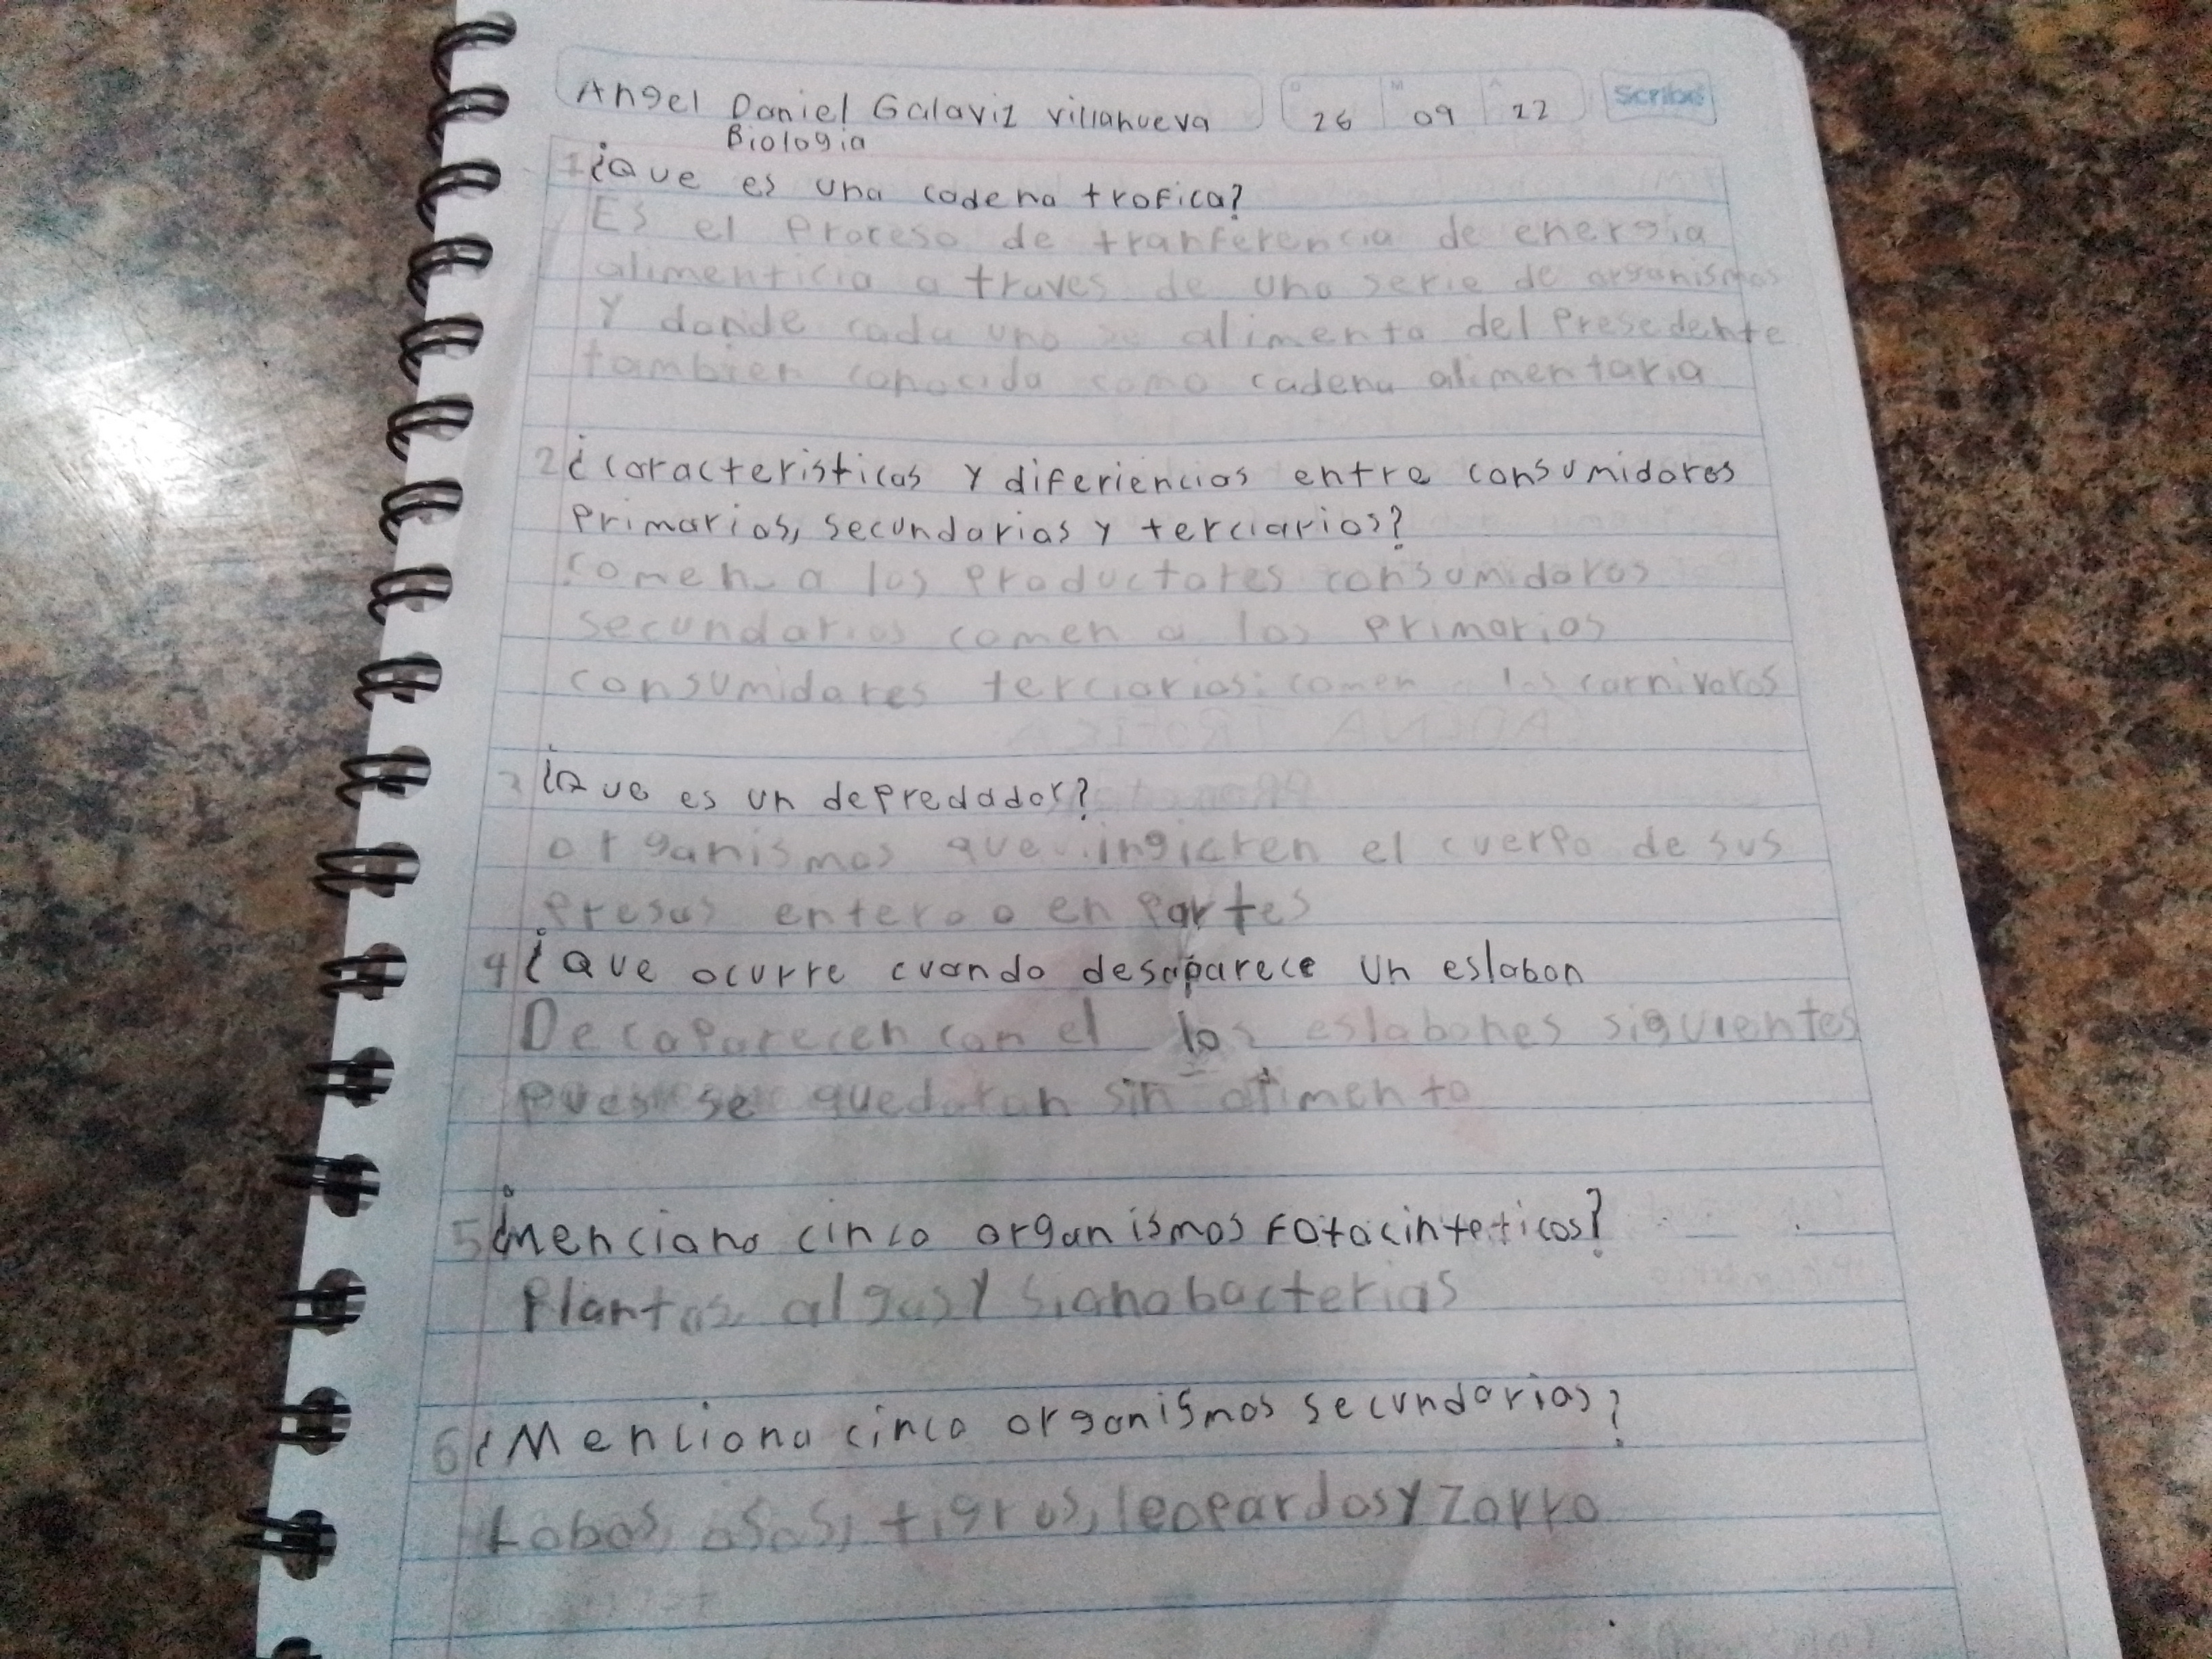 Angel Daniel Galaviz Villanueva
D 26 M 09 A 22
Scribe
Biologia
1 ¿Que es una cadena trofica?
Es el Proceso de tranferencia de energia
alimenticia a traves de una serie de organismos
Y donde cada uno se alimenta del Presedente
tambien conocida como cadena alimentaria
2 ¿caracteristicas Y diferiencias entre consumidores
Primarios, secundarios Y terciarios?
comen a los Productores consumidores
secundarios comen a los Primarios
consumidores terciarios: comen a los carnivoros
3 ¿Que es un depredador?
organismos que ingieren el cuerpo de sus
Presas entero o en Partes
4 ¿Que ocurre cuando desaparece un eslabon
Decaparecen con el los eslabones siguientes
pues se quedaran sin alimento
5 ¿menciona cinco organismos Fotocinteticos?
Plantas, algas Y sianobacterias
6 ¿Menciona cinco organismos secundarios?
Lobos, osos, tigres, leopardos Y Zorro